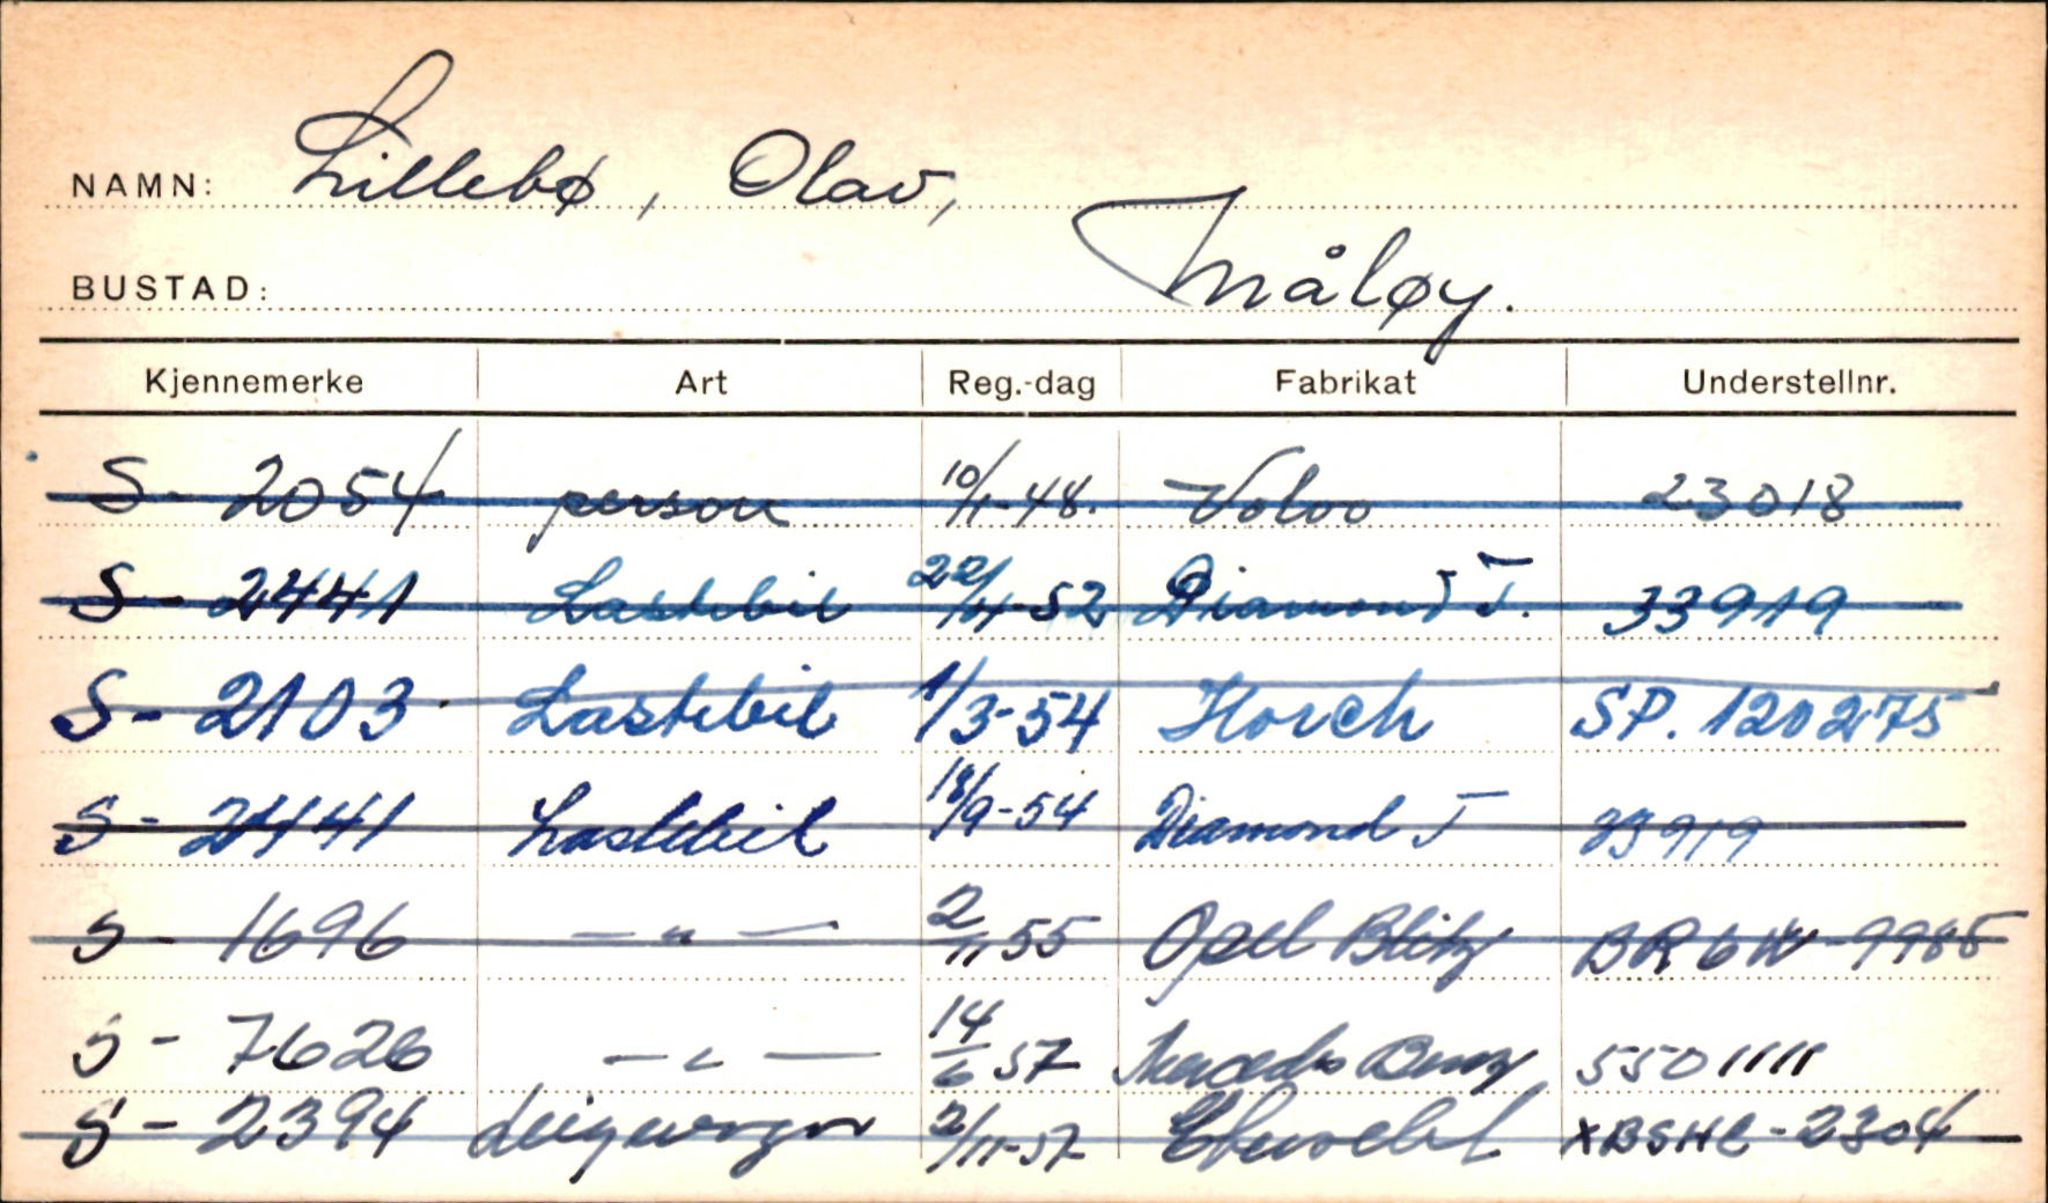 NAMN: Lillebø, Olav,
BUSTAD: Måløy.
Kjennemerke Art Reg.-dag Fabrikat Understellnr.
S - 2054 person 10/1-48. Volvo 23018
S - 2441 Lastebil 22/4-52 Diamond T. 33919
S - 2103 Lastebil 1/3-54 Horch SP. 1202475
S - 2441 Lastebil 18/9-54 Diamond T 33919
S - 1696 — " — 2/11 55 Opel Blitz BR6W-9985
S - 7626 — " — 14/6 57 Mercedes Benz 5501111
S - 2394 2/11-57 Chevrolet XBSHC-2304